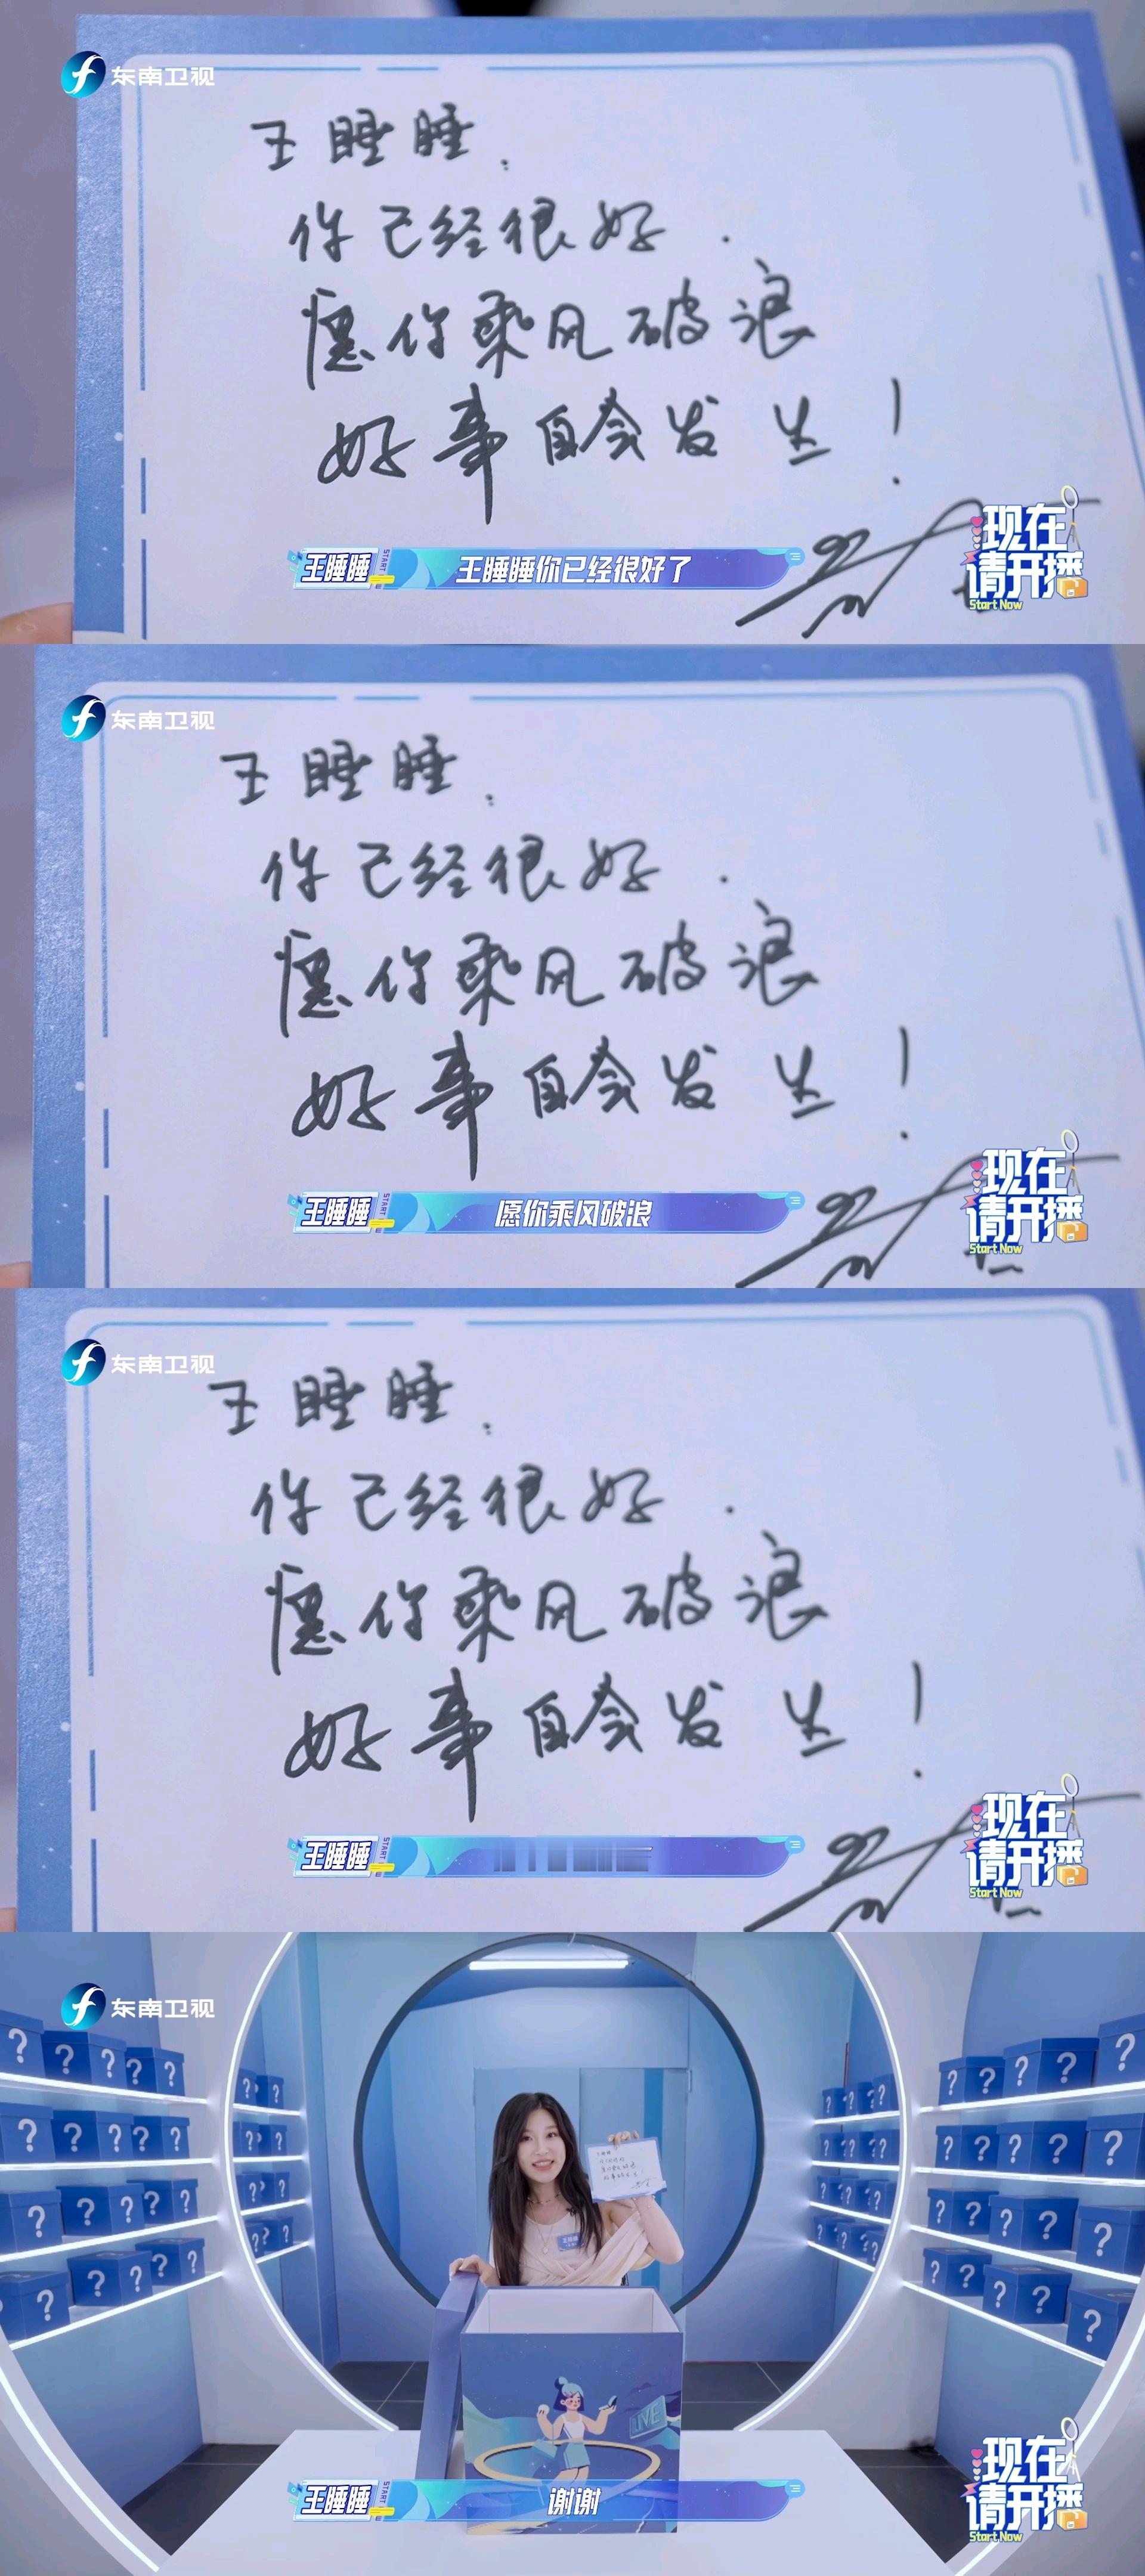 东南卫视
王睡睡：
你已经很好．
愿你乘风破浪
好事自会发生！
王睡睡
START
王睡睡你已经很好了
现在
请开播
Start Now
东南卫视
王睡睡：
你已经很好．
愿你乘风破浪
好事自会发生！
王睡睡
START
愿你乘风破浪
现在
请开播
Start Now
东南卫视
王睡睡：
你已经很好．
愿你乘风破浪
好事自会发生！
王睡睡
START
现在
请开播
Start Now
东南卫视
? ? ? ? ? ? ? ? ?
LIVE
王睡睡
START
谢谢
现在
请开播
Start Now